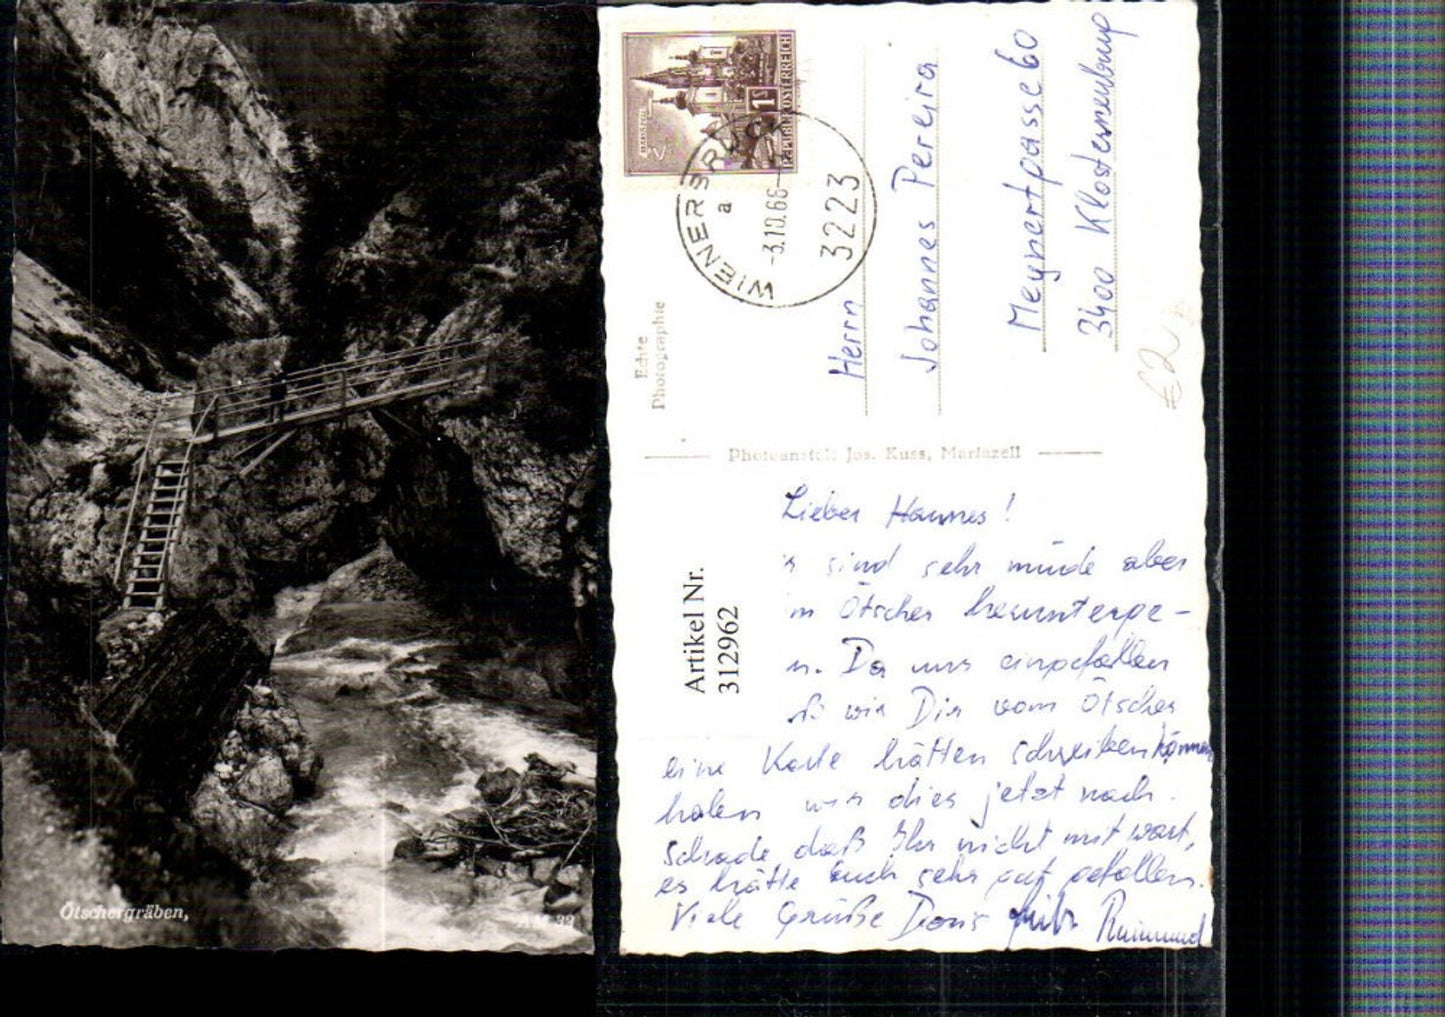 Ötschergräben,
REPUBLIK ÖSTERREICH
1S
MARIAZELL
WIENERBRUCK
a
-3.10.66-
3223
Echte
Photographie
Herrn
Johannes Pereira
Meynertgasse 60
3400 Klosterneuburg
€2
Photoanstalt Jos. Kuss, Mariazell
Artikel Nr.
312962
Lieber Hannes!
sind sehr müde aber
Ötscher herunterge-
Da uns eingefallen
wir Dir vom Ötscher
eine Karte hätten schreiben können
holen wir dies jetzt nach.
Schade, daß Ihr nicht mit wart,
es hätte Euch sehr gut gefallen.
Viele Grüße Doris